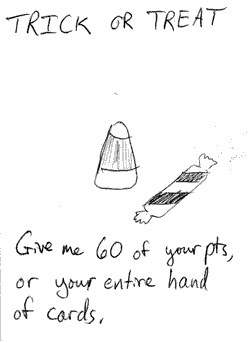 TRICK OR TREAT
Give me 60 of your pts,
or your entire hand
of cards.